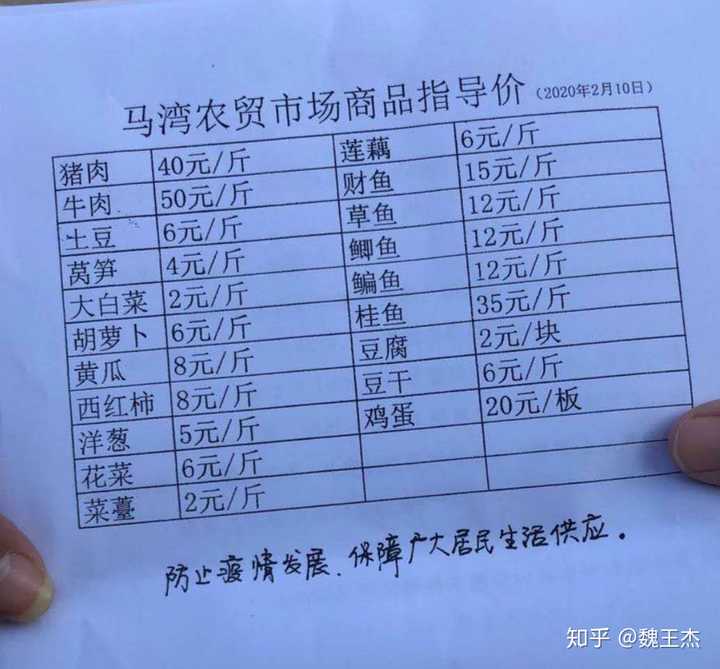 马湾农贸市场商品指导价（2020年2月10日）
猪肉 40元/斤 莲藕 6元/斤
牛肉 50元/斤 财鱼 15元/斤
土豆 6元/斤 草鱼 12元/斤
莴笋 4元/斤 鲫鱼 12元/斤
大白菜 2元/斤 鳊鱼 12元/斤
胡萝卜 6元/斤 桂鱼 35元/斤
黄瓜 8元/斤 豆腐 2元/块
西红柿 8元/斤 豆干 6元/斤
洋葱 5元/斤 鸡蛋 20元/板
花菜 6元/斤
菜薹 2元/斤
防止疫情发展、保障广大居民生活供应。
知乎 @魏王杰